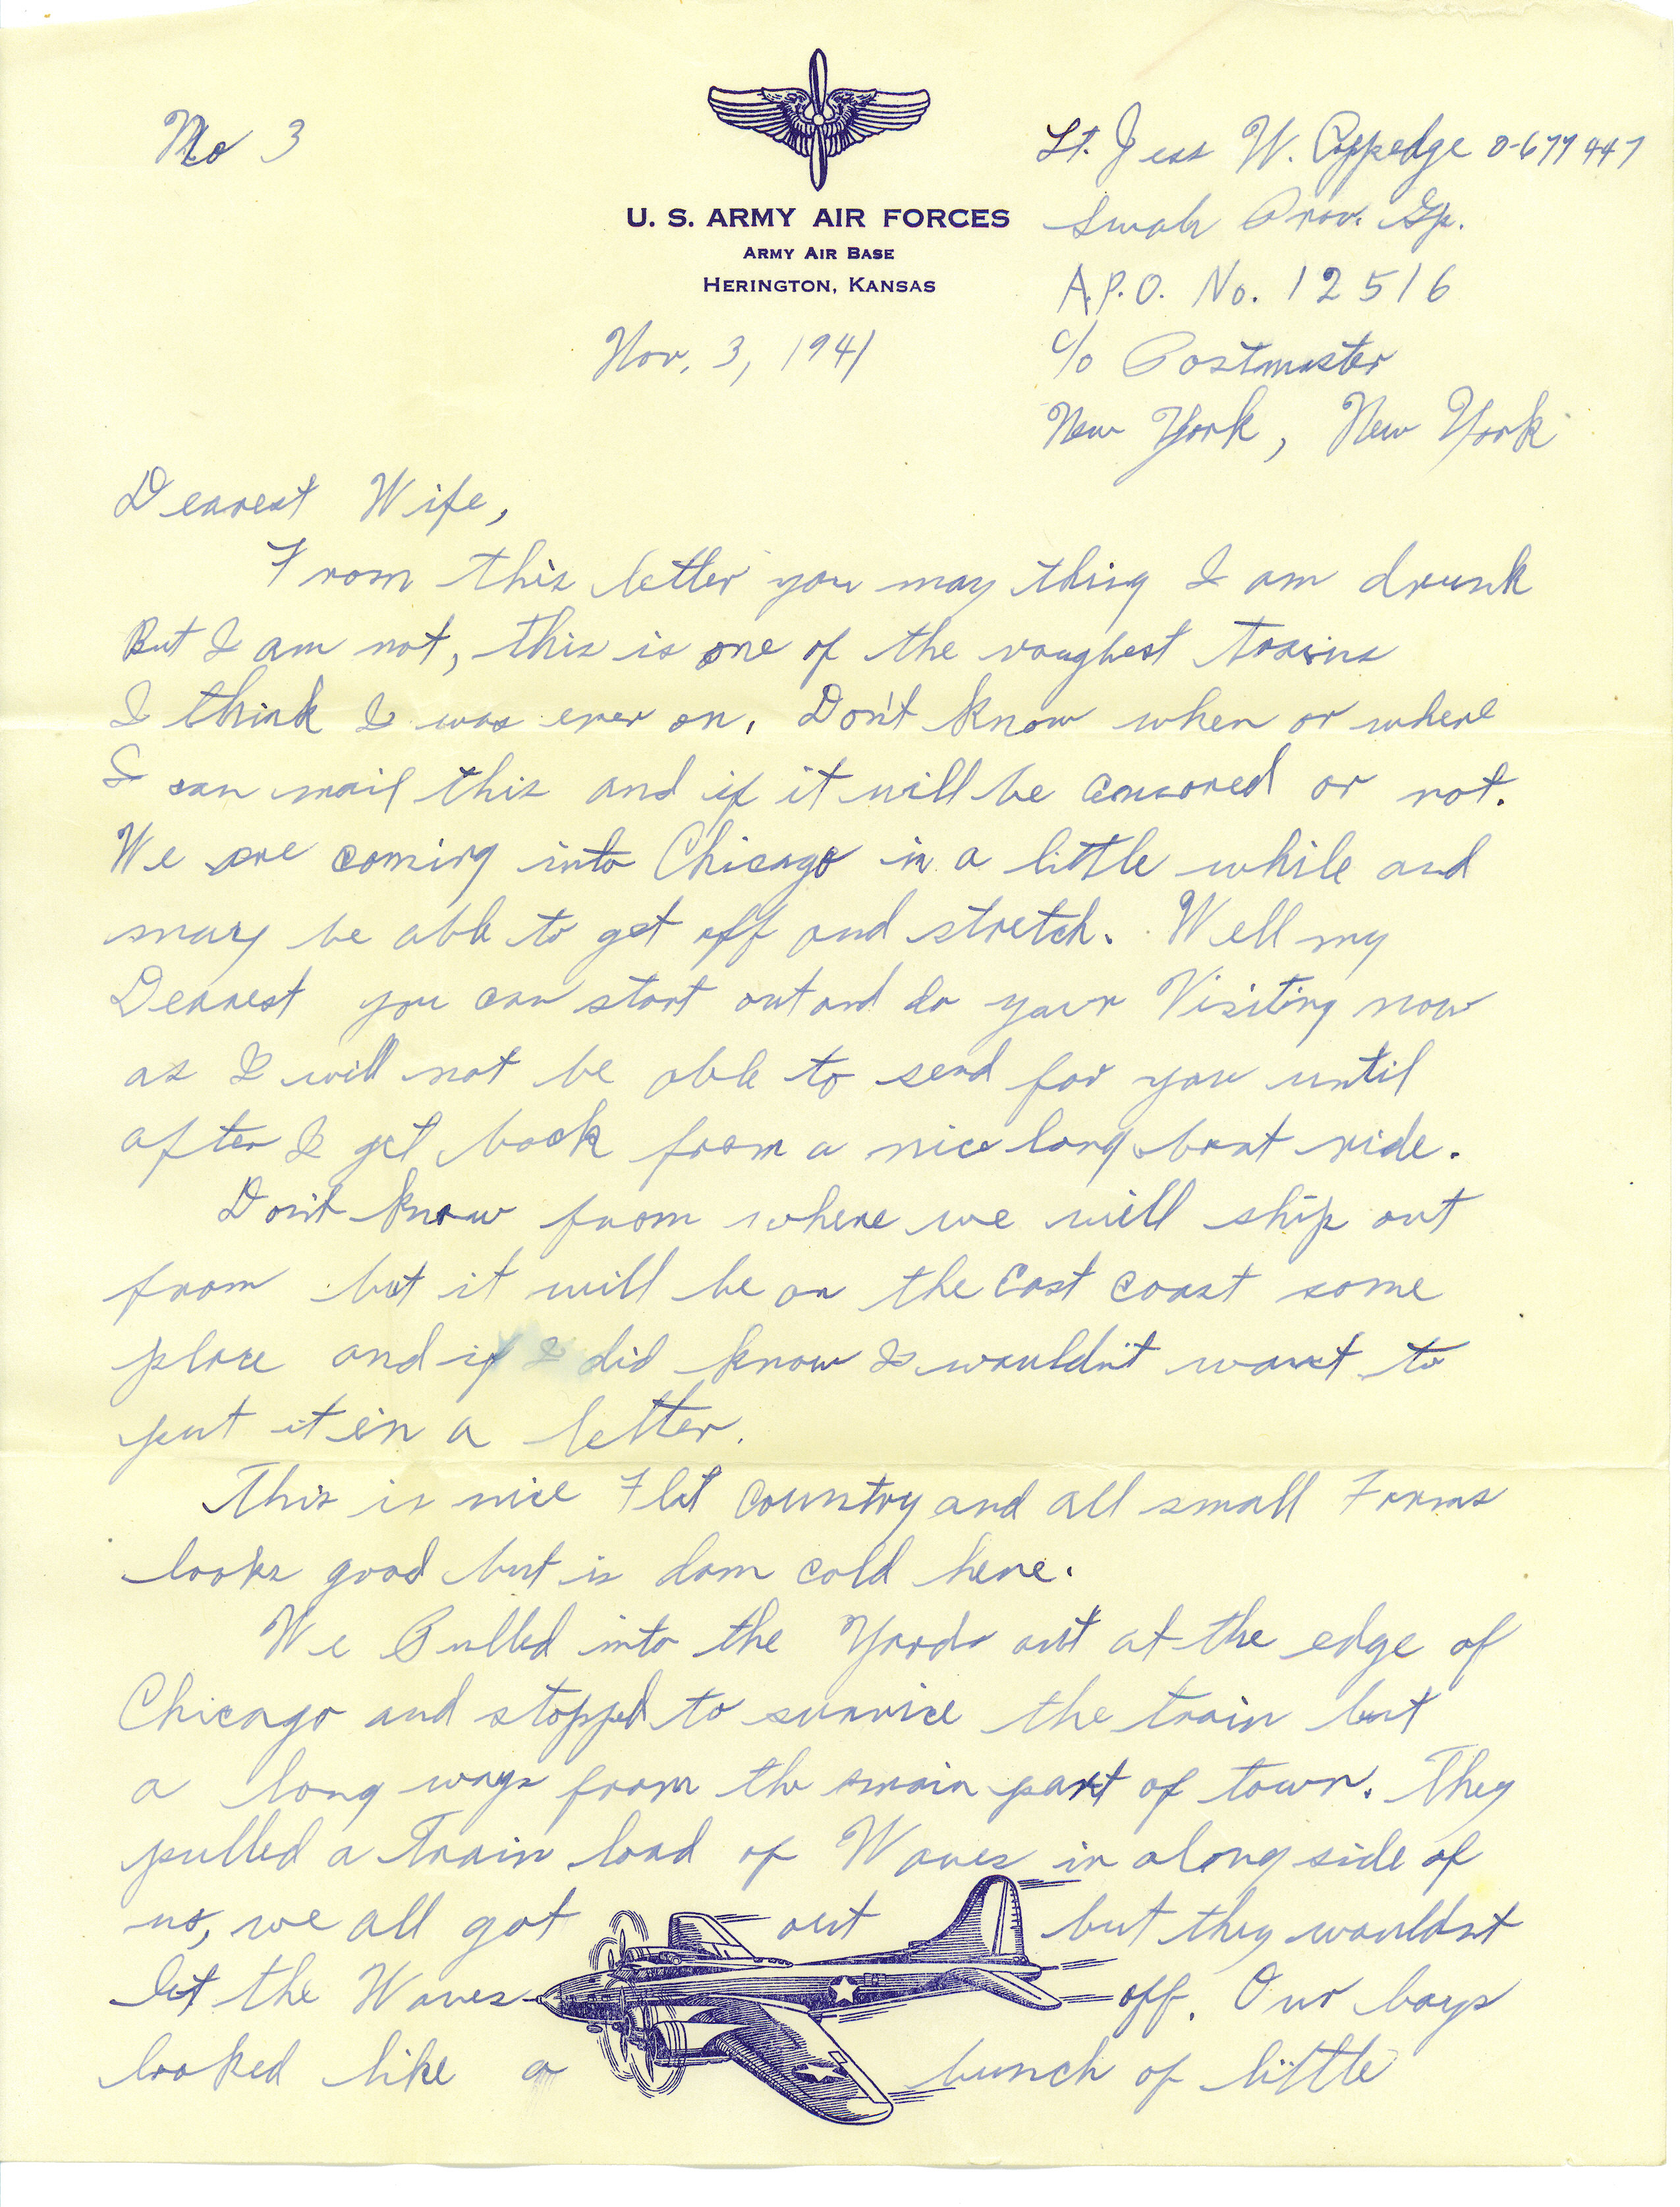 No 3
U. S. ARMY AIR FORCES
ARMY AIR BASE
HERINGTON, KANSAS
Lt. Jess W. Coppedge 0-677447
Prov. Gp.
A.P.O. No. 12516
c/o Postmaster
New York, New York
Nov. 3, 1941
Dearest Wife,
From this letter you may thing I am drunk
But I am not, this is one of the roughest trains
I think I was ever on. Don't know when or where
I can mail this and if it will be censored or not.
We are coming into Chicago in a little while and
may be able to get off and stretch. Well my
Dearest you can start out and do your Visiting now
as I will not be able to send for you until
after I get back from a nice long boat ride.
Don't know from where we will ship out
from but it will be on the East coast some
place and if I did know I wouldn't want to
put it in a letter.
This is nice Flat country and all small Farms
looks good but is dam cold here.
We Pulled into the Yards out at the edge of
Chicago and stopped to survice the train but
a long ways from the main part of town. They
pulled a train load of Waves in along side of
us, we all got out but they wouldn't
let the Waves off. Our boys
looked like a bunch of little